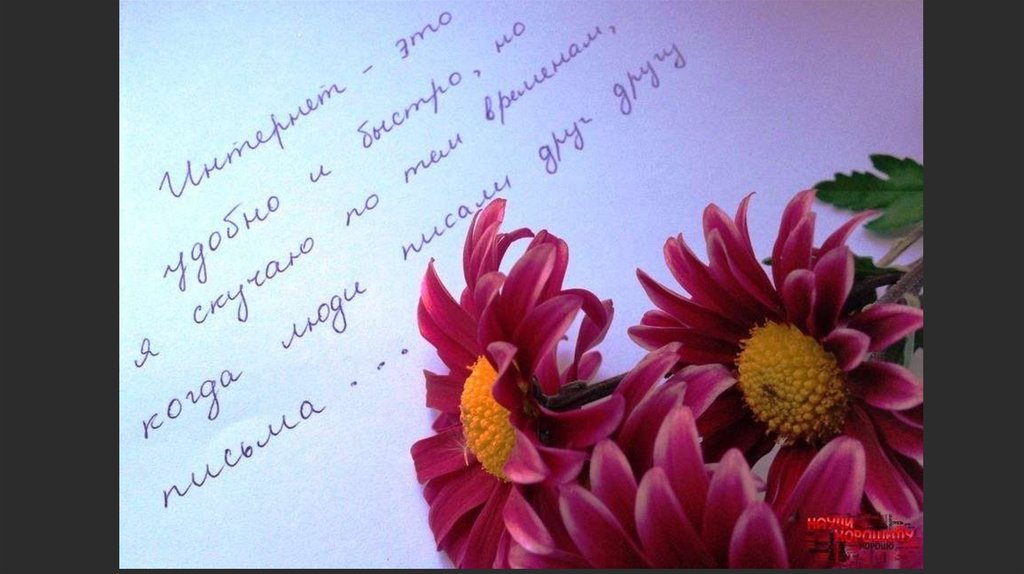 Интернет - это
удобно и быстро, но
я скучаю по тем временам,
когда люди писали друг другу
письма ...
НАУЧИ
ХОРОШЕМУ
ХОРОШО